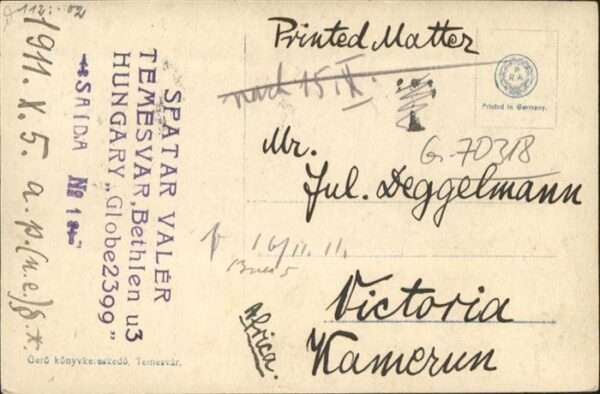 112. 02
Printed Matter
nach 15.IX.
R.A.
Printed in Germany.
G. 70318
Mr.
Jul. Deggelmann
16/11. 11.
Victoria
Kamerun
Africa.
SPATAR VALÉR
TEMESVAR, Bethlen u3
HUNGARY „Globe2399"
SAIDA № 18
1911. X. 5. a. p. (n. e.) g. *.
Gerő könyvkereskedő, Temesvár.